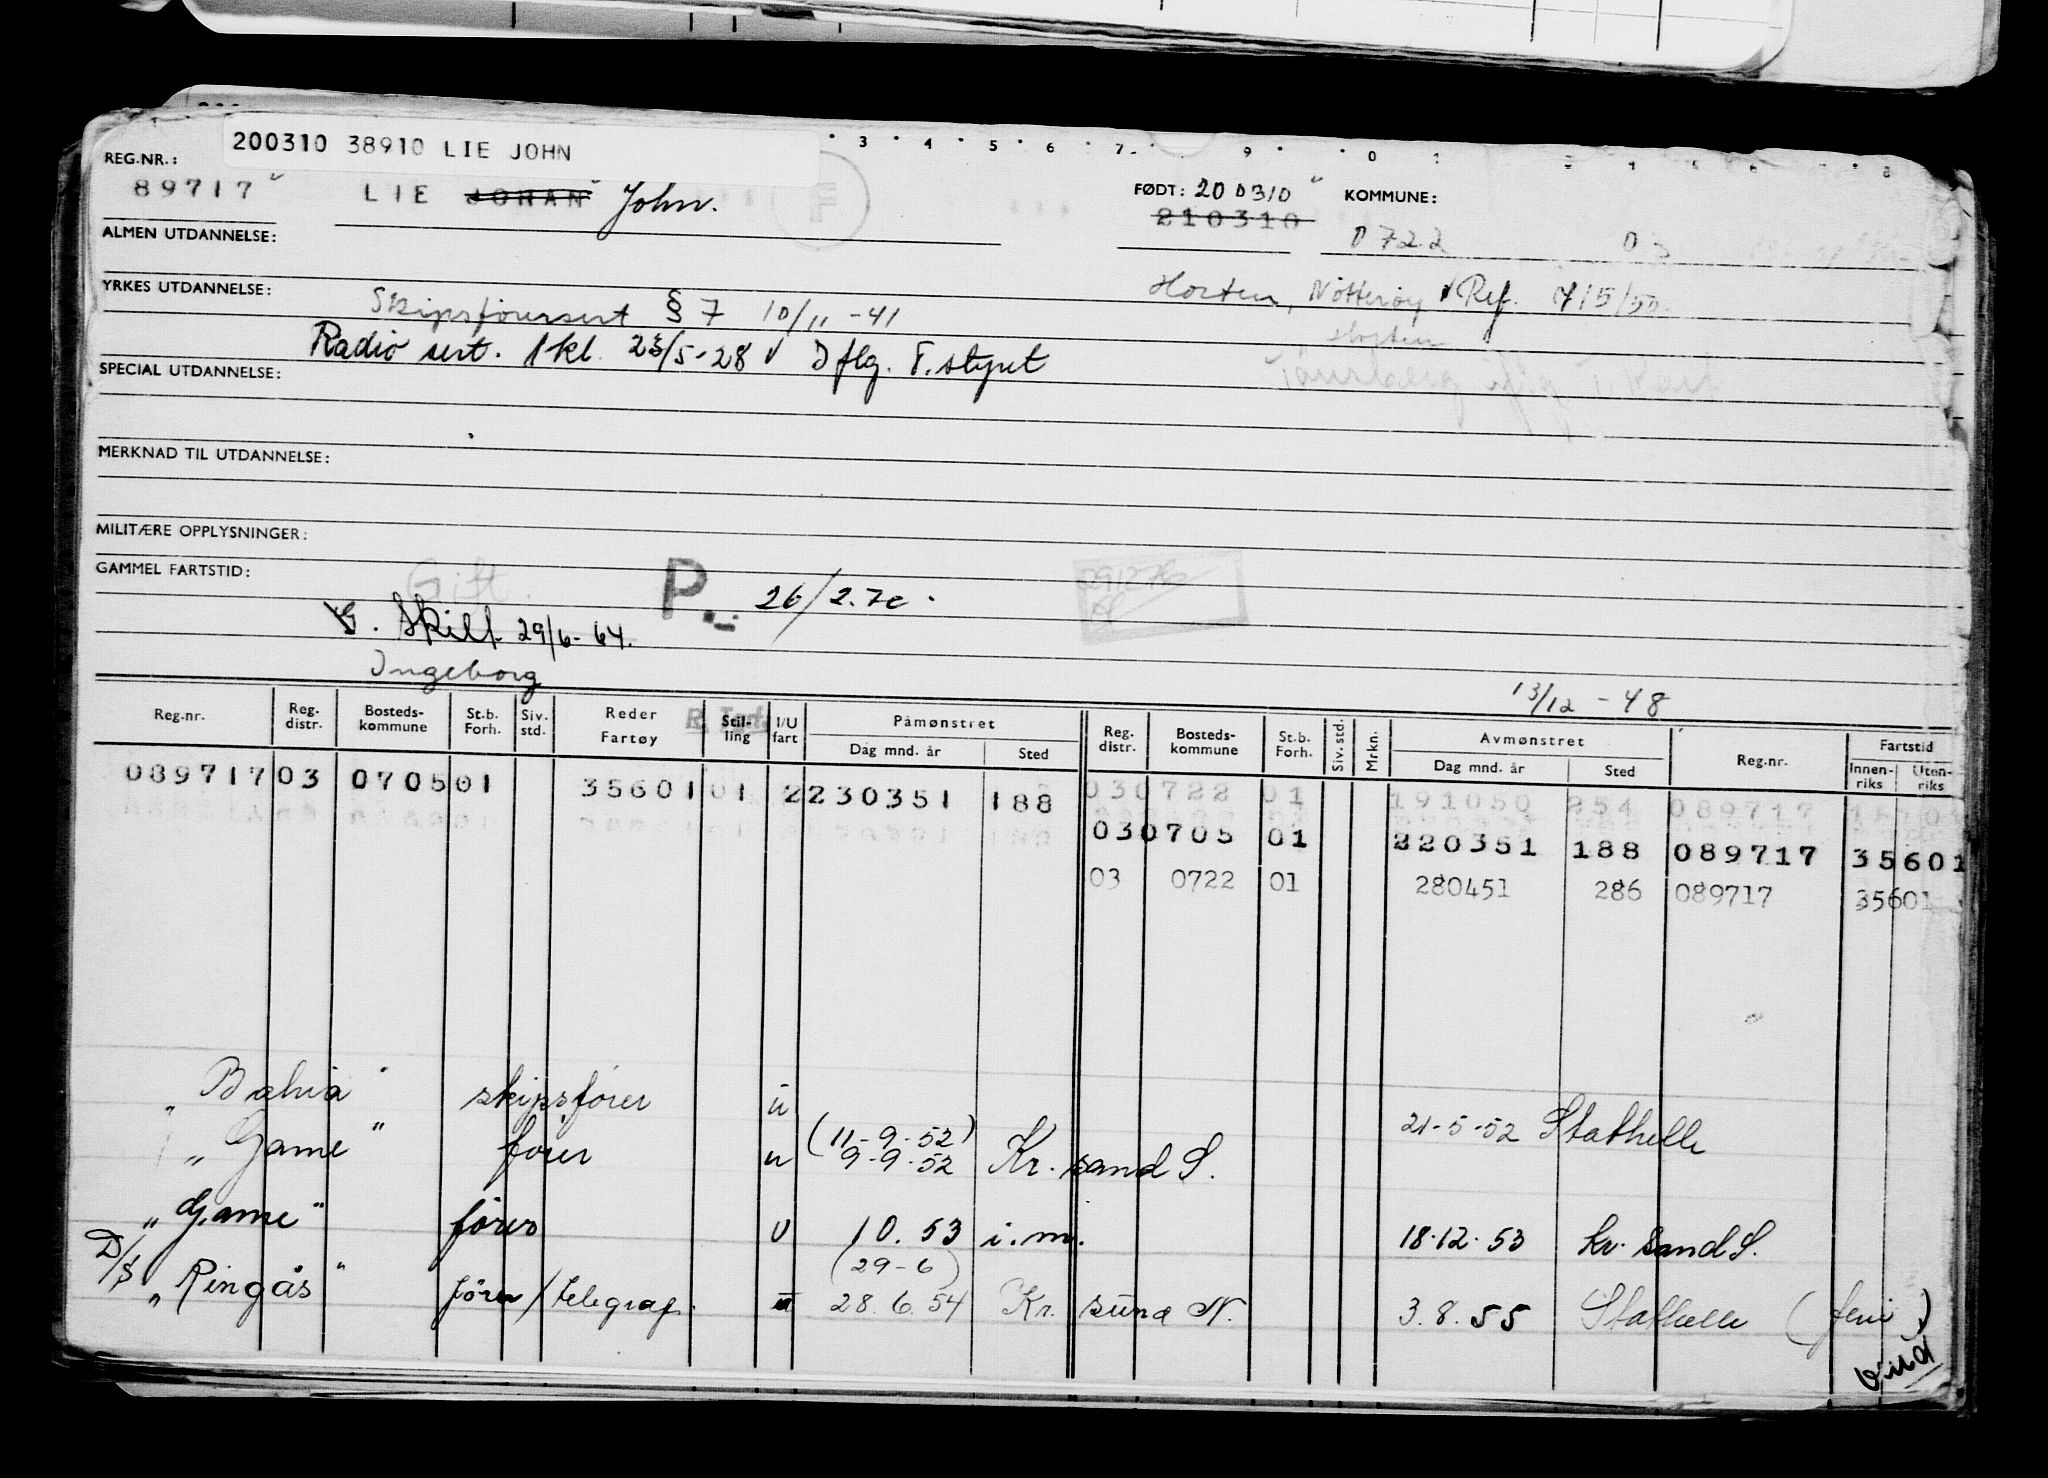 3 4 5 6 7 9 0 1
200310 38910 LIE JOHN
REG.NR.:
89717 LIE JOHAN John. FØDT: 200310 KOMMUNE:
210310 0722 03
ALMEN UTDANNELSE:
YRKES UTDANNELSE: Horten, Nøtterøy Ref. 715/50.
Skipsførersert § 7 10/11-41
Horten
Radio sert. 1kl. 23/5-28 V D flg. T. styret
Tønsberg
SPECIAL UTDANNELSE:
MERKNAD TIL UTDANNELSE:
MILITÆRE OPPLYSNINGER:
GAMMEL FARTSTID: Gift. P. 26/2.70.
G. Skilt 29/6-64.
Ingeborg
13/12-48
Reg.nr. Reg. distr. Bosteds-kommune St.b. Forh. Siv. std. Reder Fartøy Stil-ling I/U fart Påmønstret Dag mnd. år Sted Reg. distr. Bosteds-kommune St.b. Forh. Siv. std. Mrkn. Avmønstret Dag mnd. år Sted Reg.nr. Fartstid Innen-riks Uten-riks
089717 03 0705 01 35601 01 2 230351 188 03 0722 01 191050 254 089717
03 0705 01 220351 188 089717 35601
03 0722 01 280451 286 089717 35601
"Bahia" skipsfører u 21-5-52 Stathelle
(11-9-52)
"Game" fører u 9-9-52 Kr. sand S.
"Game" fører U 10.53 i.m. 18.12.53 Kr. sand S.
(29-6)
D/S "Ringås" fører/telegraf. u 28.6.54 Kr. sund N. 3.8.55 Stathelle (feri)